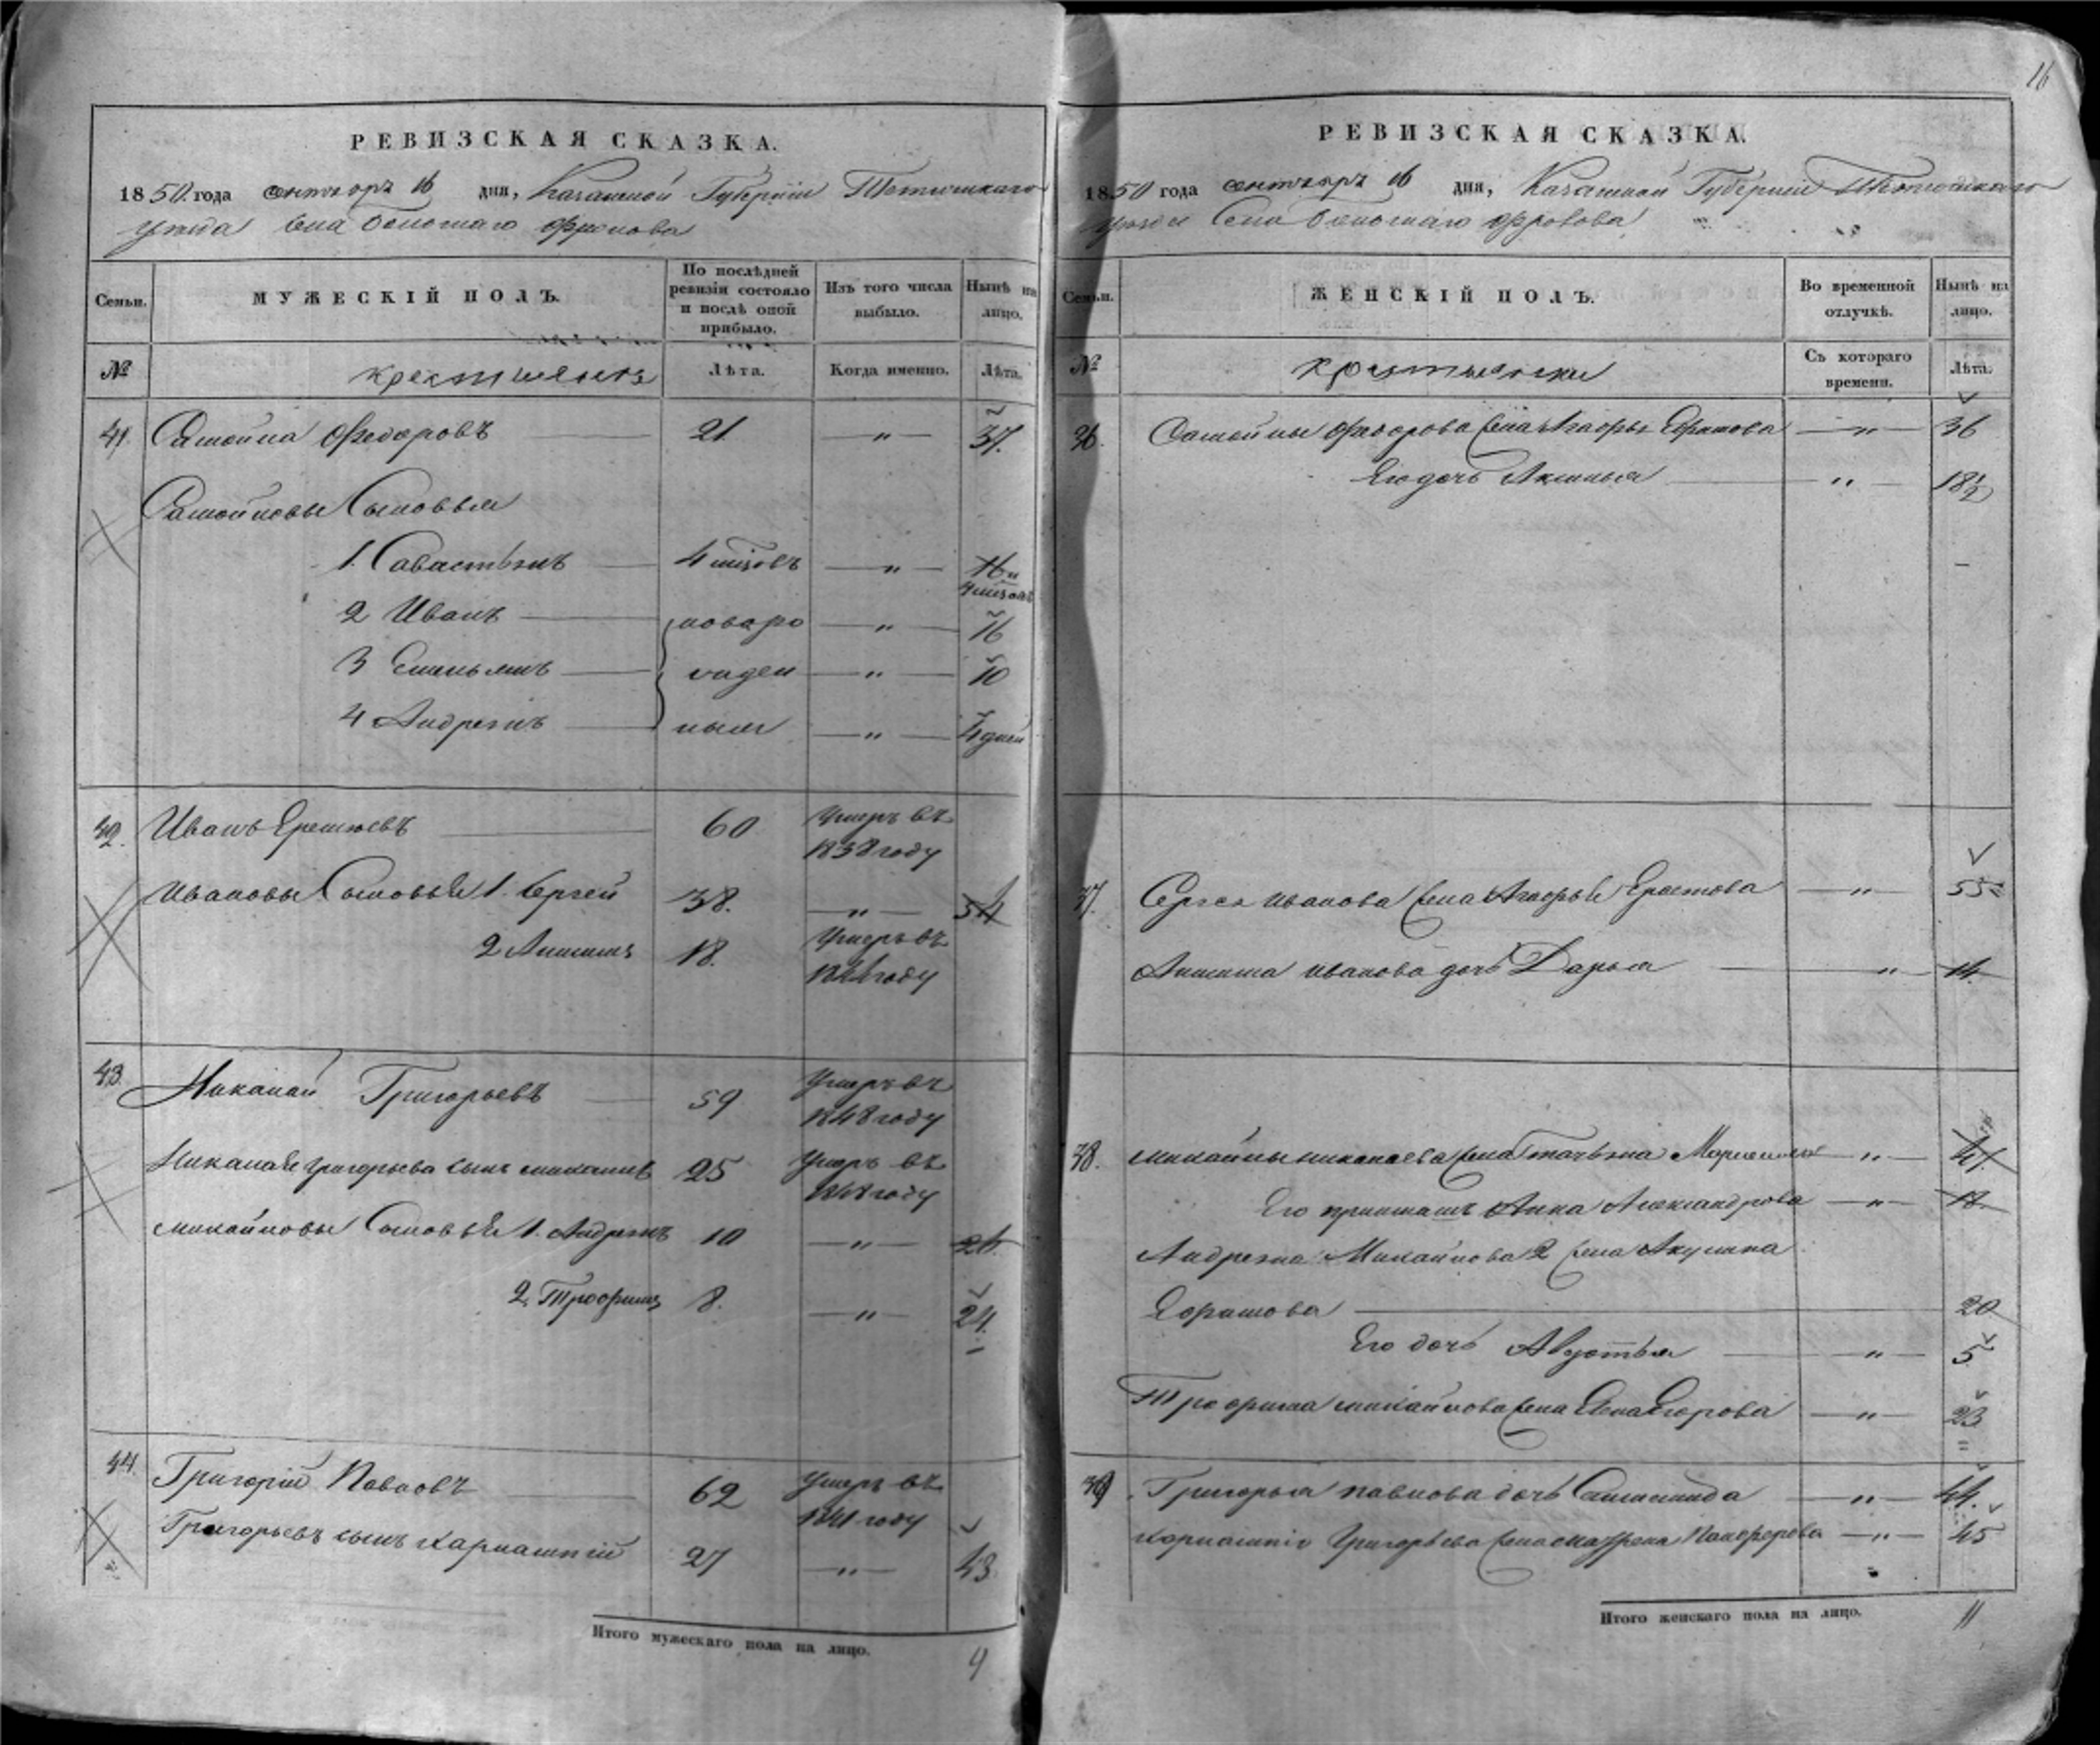 16
РЕВИЗСКАЯ СКАЗКА.
1850. года сентября 16 дня, Казанской Губернии Тетюшскаго
уезда Села Большаго Фролова
Семьи.
МУЖЕСКІЙ ПОЛЪ.
По послѣдней ревизіи состояло и послѣ оной прибыло.
Изъ того числа выбыло.
Нынѣ на лицо.
№ крестьянъ Лѣта. Когда именно. Лѣта.
41. Самойла Федоровъ 21 — " — 37.
Самойловы Сыновья
1. Савастьянъ 4 мѣсяцовъ — " — 16 и
2 Иванъ новаро — " — 16
3 Емельянъ жден — " — 10
4 Андреянъ ныя — " — 4 дней
42. Иванъ Еремѣевъ 60 Умеръ въ
1838 году
Ивановы Сыновья 1. Сергей 38. — " — 54
2 Анисимъ 18. Умеръ въ
году
43. Николай Григорьевъ 59 Умеръ въ
1848 году
Николая Григорьева сынъ Михайла 25 Умеръ въ
1848 году
Михайловы Сыновья 1. Андреянъ 10 — " — 26.
2. Трофимъ 8. — " — 24.
44. Григорій Павловъ 62 Умеръ въ
1841 году
Григорьевъ сынъ 27 — " — 43
Итого мужескаго пола на лицо. 9
РЕВИЗСКАЯ СКАЗКА.
1850 года сентября 16 дня, Казанской Губернии Тетюшскаго
уезда Села Большаго Фролова
Семьи.
ЖЕНСКІЙ ПОЛЪ.
Во временной отлучкѣ.
Нынѣ на лицо.
№ крестьянки Съ котораго времени. Лѣта.
36. Самойлы Федорова жена Ефимова — " — 36
Его дочь Аксинья — " — 18½
37. Сергея Иванова жена — " — 55
Анисима Иванова дочь Дарья — " — 14.
38. Михайлы Николаева жена Татьяна — " — 47.
Его Анна Александрова — " — 18.
Андреяна Михайлова 2 жена Акулина
Ефимова 20
Его дочь Авдотья — " — 5
Трофима Михайлова жена Егорова — " — 23
39 Григорья Павлова дочь — " — 44.
Григорьева жена — " — 45
Итого женскаго пола на лицо. 11